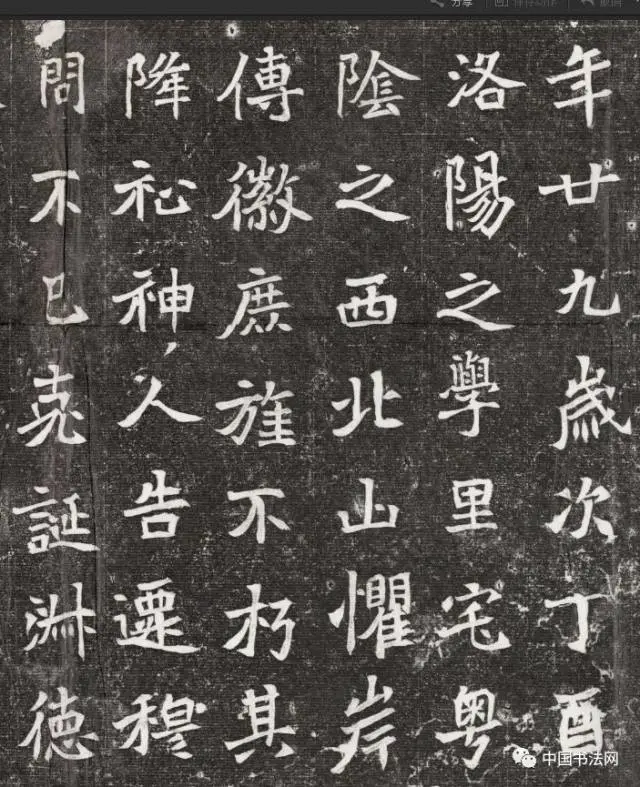 年廿九歲次丁酉
洛陽之學里宅粤
陰之西北山懼岸
傳徽庶旌不朽其
降祉神人告遷穆
問不已克誕淑德
中国书法网